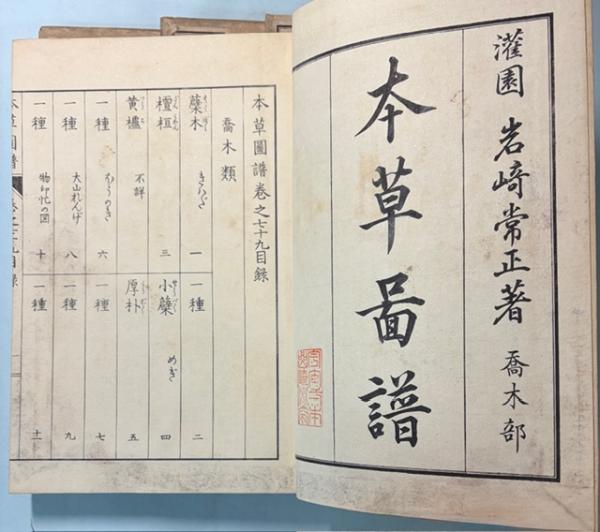 灌園 岩﨑常正著 喬木部
本草啚譜
本草圖譜卷之七十九目録
喬木類
蘗木 きはだ 一 一種 二
檀桓 三 小蘗 めぎ 四
黄櫨 不詳 厚朴 五
一種 ほうのき 六 一種 七
一種 大山れんげ 八 一種 九
一種 物印忙の図 十 一種 十一
本草圖譜 卷之七十九目録